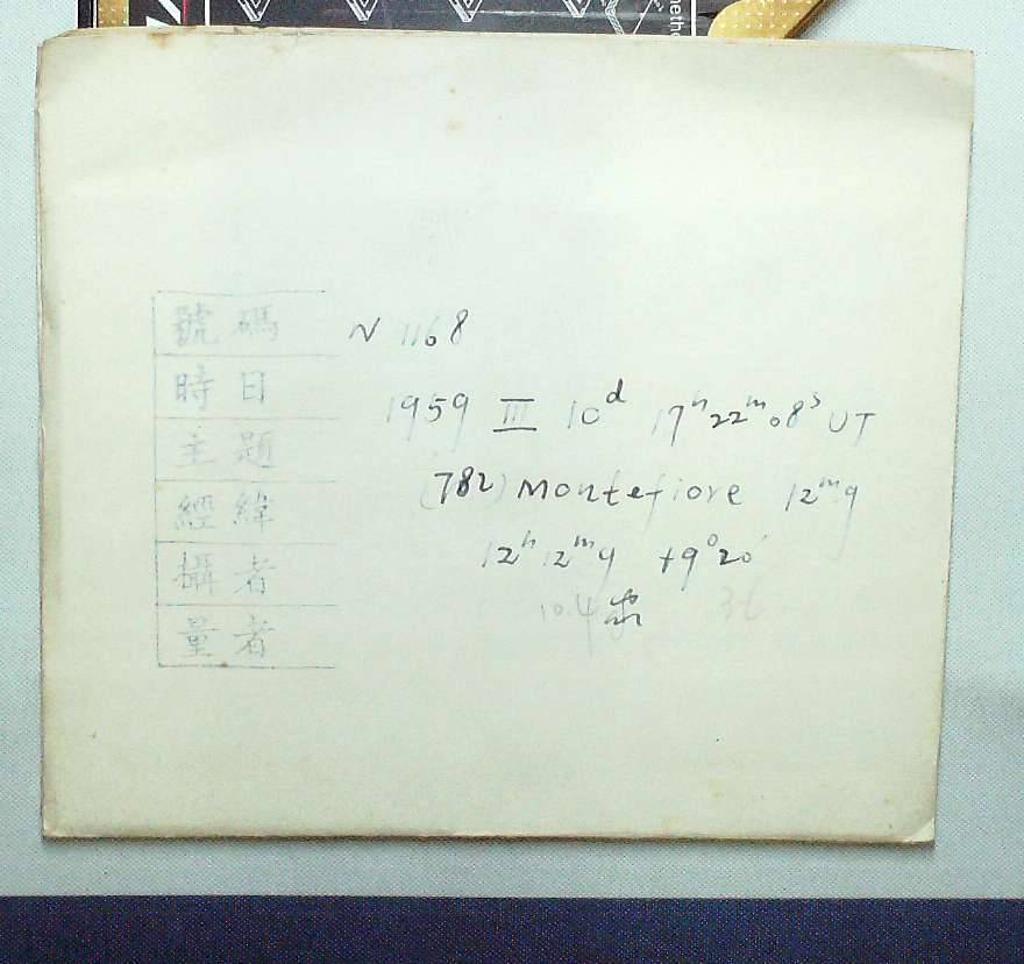 號碼 N 1168
時日 1959 III 10ᵈ 17ʰ22ᵐ08ˢ UT
主題 (782) Montefiore 12ᵐ9
經緯 12ʰ12ᵐ9 +9°20′
攝者
量者